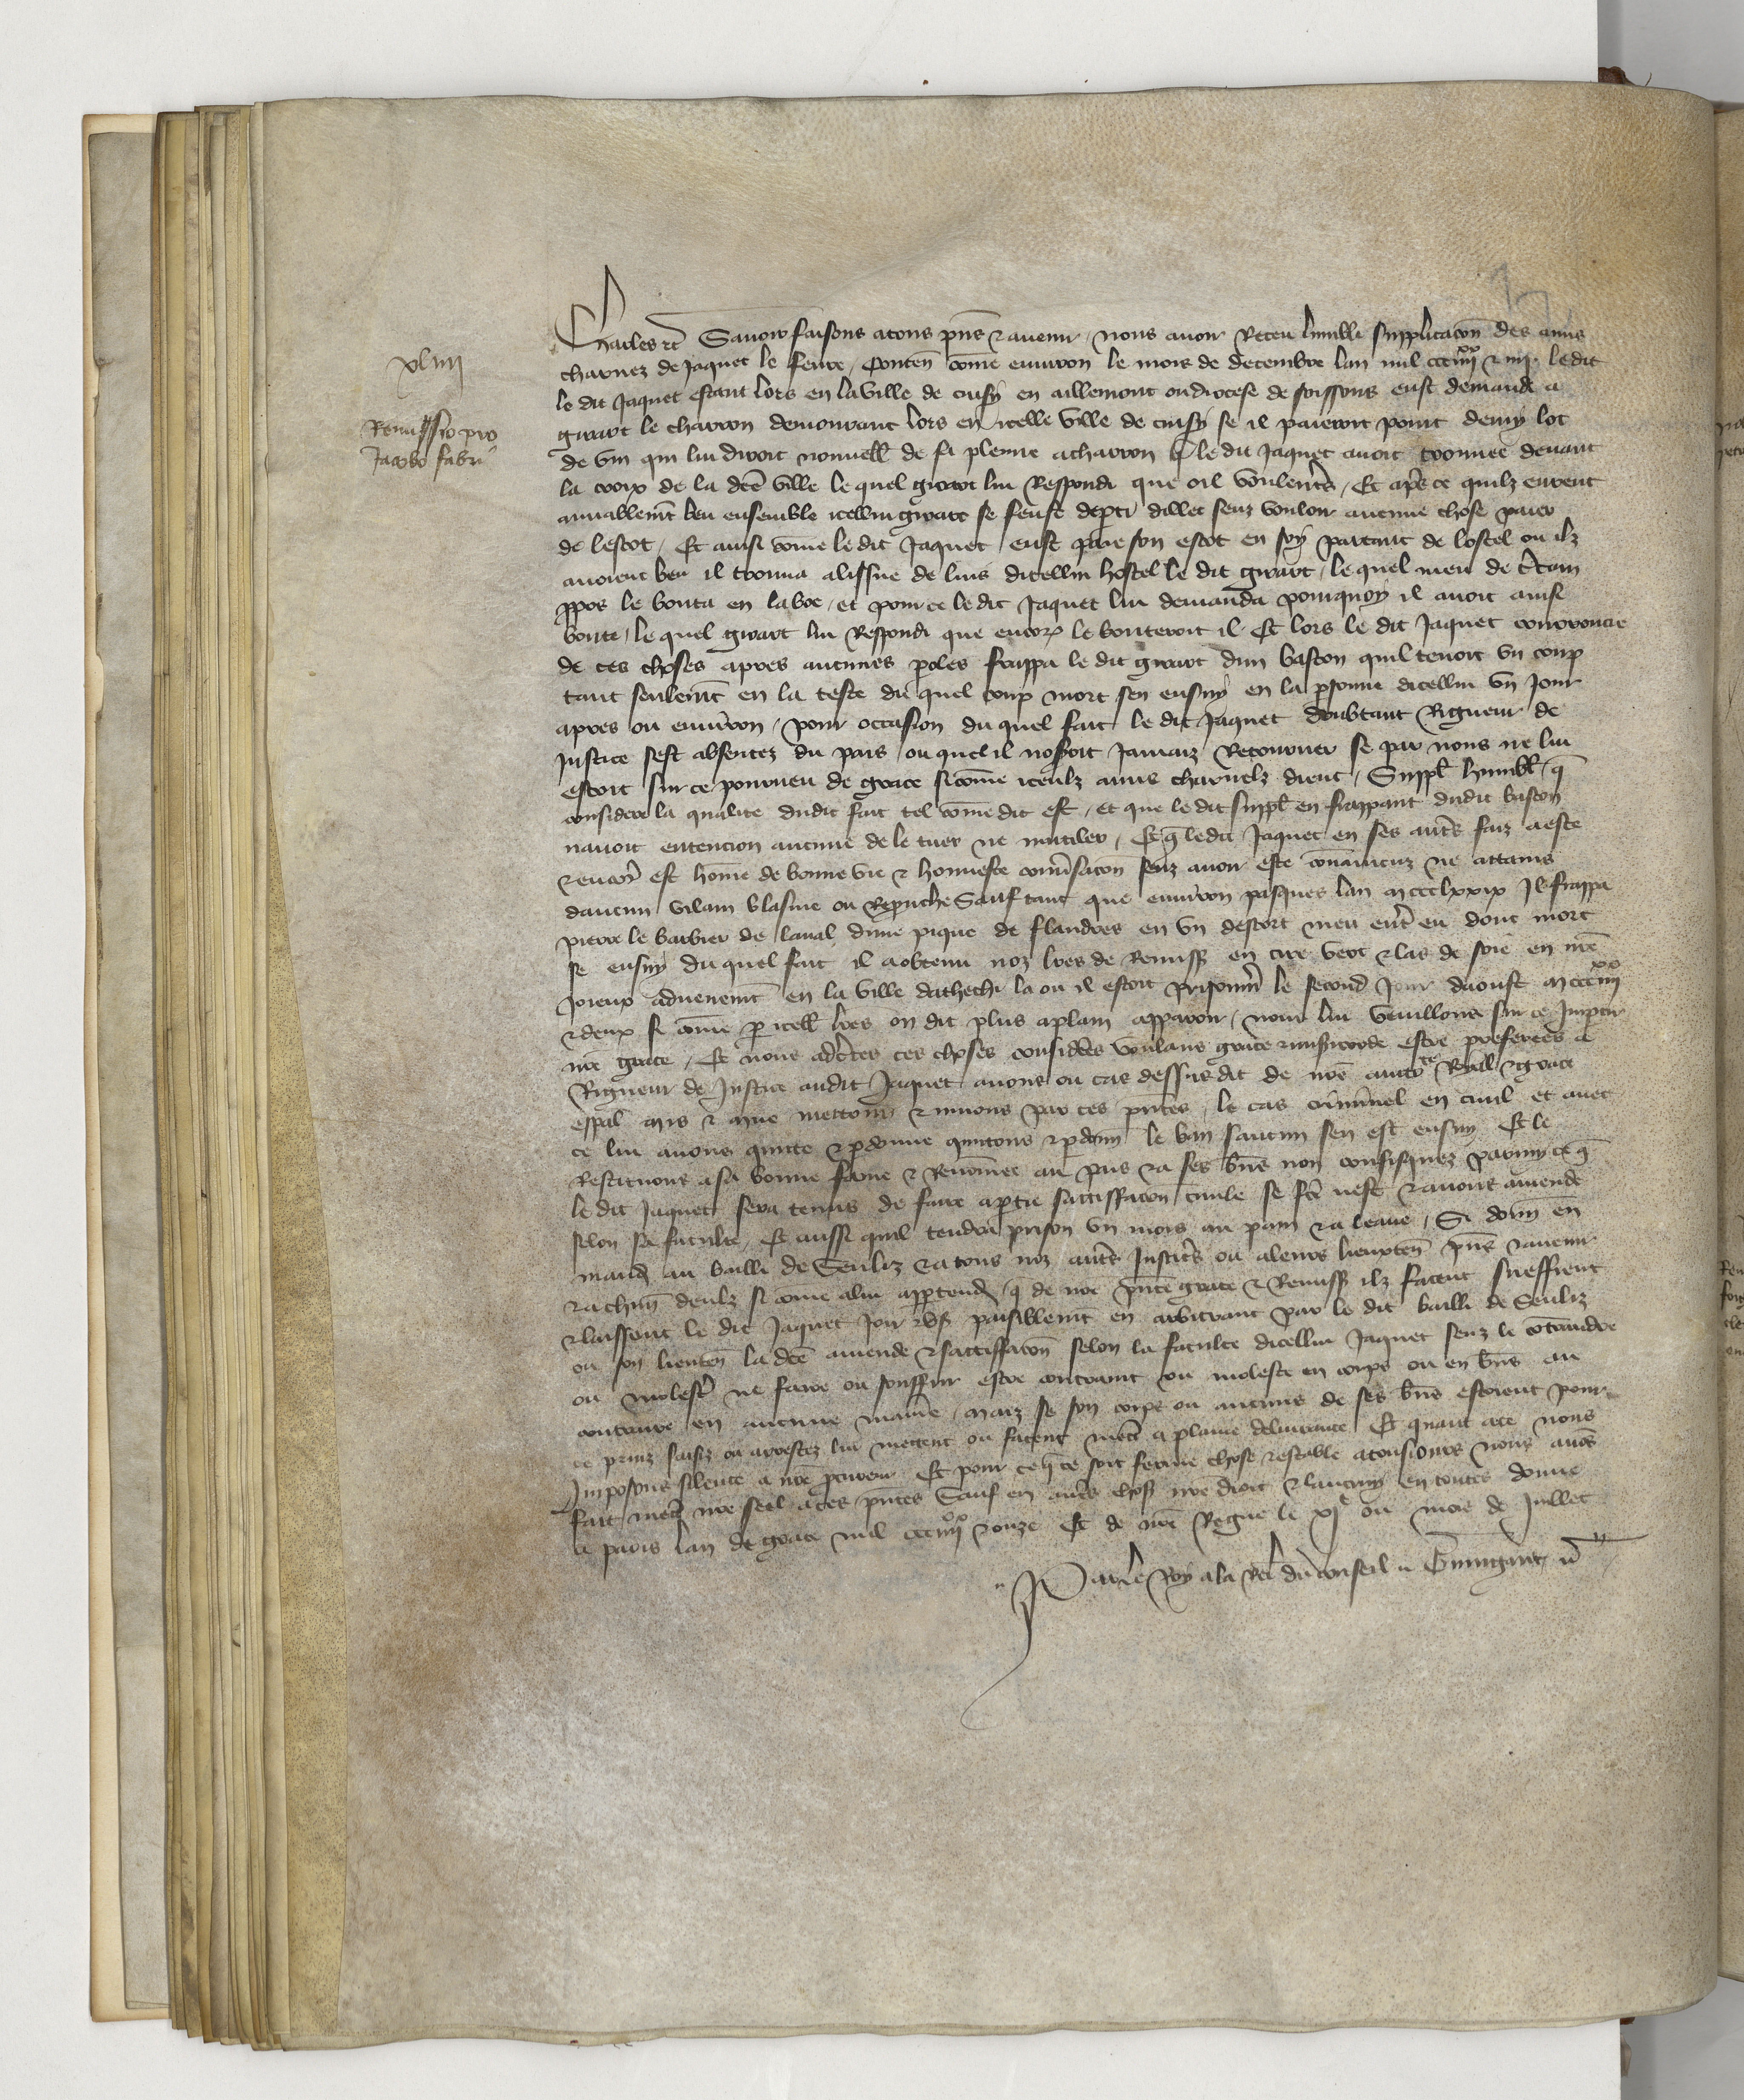 xliiii
Remissio pro
Jacobo fabri
Charles etc Savoir faisons a tous pñs & avenir, nous avoir Receu lumble supplicacoñ des amis
charnez de Jaquet le fevre, Conteñ cõme environ le mois de decembre lan mil ccc iiiixx & iiii ledit
le dit Jaquet estant lors en la ville de cuisy en aillemont ou diocese de soissons eust demandé a
girart le charron demourant lors en icelle ville de cuisy se il paieroit point demy lot
de vin qui lui diroit nouvell de sa plenne a charron q̃ le dit Jaquet avoit trouvee devant
la croix de la dcẽ ville le quel girart lui Respondi que oil voulentrs, Et aprs ce quilz eurent
amiablemt beu ensemble icellui girart se feust depti dillec senz vouloir aucune chose paier
de lescot, Et ainsi cõme le dit Jaquet eust paie son escot en soy partant de lostel ou ilz
avoient beu il trouva a lissue de luis dicellui hostel le dit girart, le quel meu de ctain
ppos le bouta en la boe, et pour ce le dit Jaquet lui demanda pourquoy il avoit ainsi
bouté, le quel girart lui Respondi que encorz le bouteroit il Et lors le dit Jaquet courroucie
de ces choses apres aucunes poles frappa le dit girart dun baston quil tenoit un coup
tant seulemt en la teste du quel coup mort sen ensuy en la psonne dicellui un Jour
apres ou environ, pour occasion du quel fait le dit Jaquet doubtant Rigueur de
Justice sest absentez du pais ou quel il noseroit Jamaiz Retourner se par nous ne lui
estoit sur ce pourveu de grace si cõme iceulz amis charnelz dient, Suppl humbl q̃
considere la qualite dudit fait tel cõme dit est, et que le dit suppl en frappant dudit baston
navoit entencion aucune de le tuer ne mutiler, Et q̃ ledit Jaquet en ses autrs faiz a este
& encor est hõme de bonne vie & honneste convsacoñ senz avoir este convaincuz ne attains
daucun vilain blasme ou Reprouche Sauf tant que environ pasques lan m ccc lxxix Il frappa
pierre le barbier de laval dune pique de flandres en un descort meu entr eu dont mort
se ensuy du quel fait il a obtenu noz lres de Remiss en cire vert & las de soie en nre
Joieux advenemt en la ville dathechi la ou il estoit prisonnr le second Jour daoust m ccc iiiixx
& deux si cõme p icell lres on dit plus a plain apparoir, nous lui veuillons sur ce Impartir
nre grace, Et nous adctes ces choses considees voulans grace & misicorde estre preferees a
Rigueur de Justice audit Jaquet avons ou cas dessus dit de nre aucte Royall & grace
espal mis & mue mettons & muons par ces pntes, le cas criminel en civil et avec
ce lui avons quitté & pdonné quittons & pdonñ le ban saucun sen est ensuy Et le
Restituons a sa bonne fame & Renõmee au pais & a ses bñs non confisquez parmy ce q̃
le dit Jaquet sera tenus de faire a ptie satisfacoñ civile se fce nest & a nous amende
selon sa faculte, Et aussi quil tendra prison un mois au pain & a leaue, Si donñ en
mand au bailli de Senliz & a tous noz autrs Justicrs ou a leurs lieuxteñ pñs & avenir
& a chũn deulz si cõme a lui apptend q̃ de nre pnte grace & Remiss ilz facent sueffrent
& laissent le dit Jaquet Joir & us paisiblemt en arbitrant par le dit bailli de Senliz
ou son lieuteñ la dcẽ amende & satisfacoñ selon la faculte dicellui Jaquet senz le contraindre
ou molestr ne faire ou souffrir estre contraint ou moleste en corps ou en bñs au
contraire en aucune maniere, maiz se son corps ou aucuns de ses bñs estoient pour
ce prinz saisiz ou arrestez lui mettent ou facent mettr a plaine delivrance Et quant a ce nous
Imposons silence a nre pcureur Et pour ce q̃ ce soit ferme chose & estable a tousiours nous avõs
fait mettr nre seel a ces pntes Sauf en autrs chos nre droit & lautruy en toutes donné
a paris lan de grace mil ccc iiiixx & onze Et de nre Regne le xje ou mois de Juillet
Par le Roy a la Rel du conseil